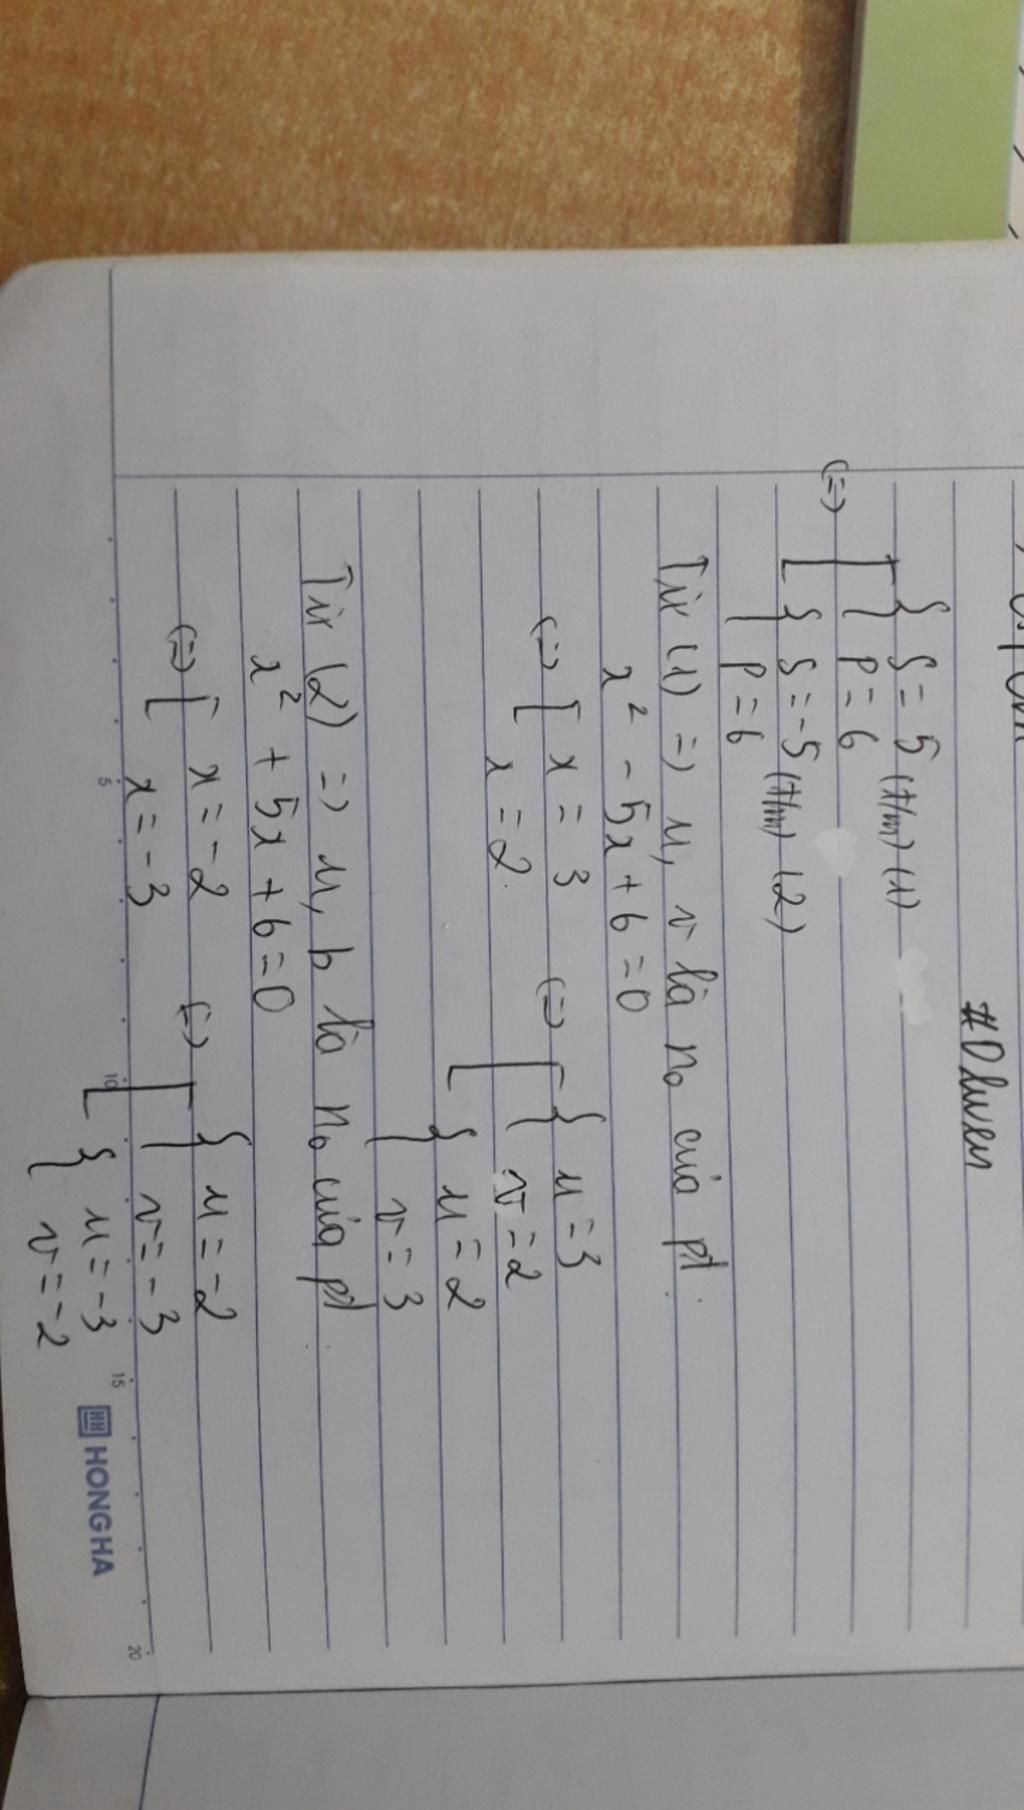 #Dluyen
{ S = 5 (t/m) (1)
(=) [ { P = 6
{ S = -5 (t/m) (2)
{ P = 6
Từ (1) =) u, v là n₀ của pt
x² - 5x + 6 = 0
(=) [ x = 3 (=) [ { u = 3
x = 2 { v = 2
{ u = 2
{ v = 3
Từ (2) =) u, b là n₀ của pt
x² + 5x + 6 = 0
(=) [ x = -2 (=) [ { u = -2
x = -3 { v = -3
{ u = -3
{ v = -2
5 10 15 20
HH HONG HA